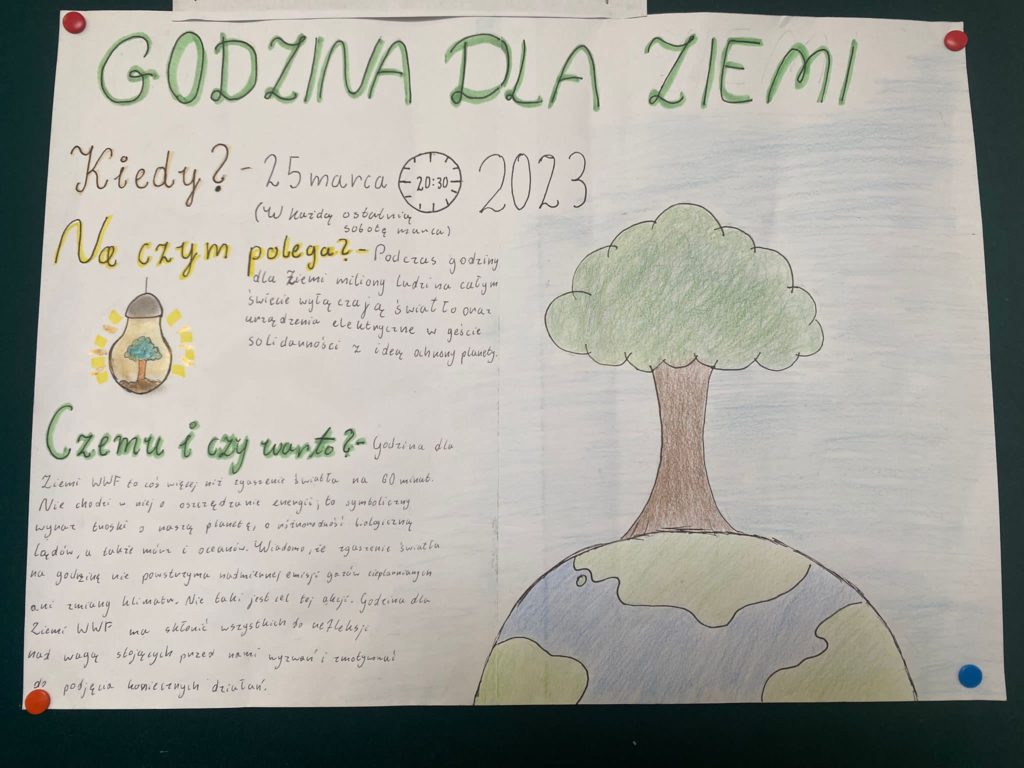 GODZINA DLA ZIEMI
Kiedy? - 25 marca 20:30 2023
(W każdą ostatnią
sobotę marca)
Na czym polega? - Podczas godziny
dla Ziemi miliony ludzi na całym
świecie wyłączają światło oraz
urządzenia elektryczne w geście
solidarności z ideą ochrony planety.
Czemu i czy warto? - Godzina dla
Ziemi WWF to coś więcej niż zgaszenie światła na 60 minut.
Nie chodzi w niej o oszczędzanie energii, to symboliczny
wyraz troski o naszą planetę, o różnorodność biologiczną
lądów, a także mórz i oceanów. Wiadomo, że zgaszenie światła
na godzinę nie powstrzyma nadmiernej emisji gazów cieplarnianych
ani zmiany klimatu. Nie taki jest cel tej akcji. Godzina dla
Ziemi WWF ma skłonić wszystkich do refleksji
nad wagą stojących przed nami wyzwań i zmotywować
do podjęcia koniecznych działań.